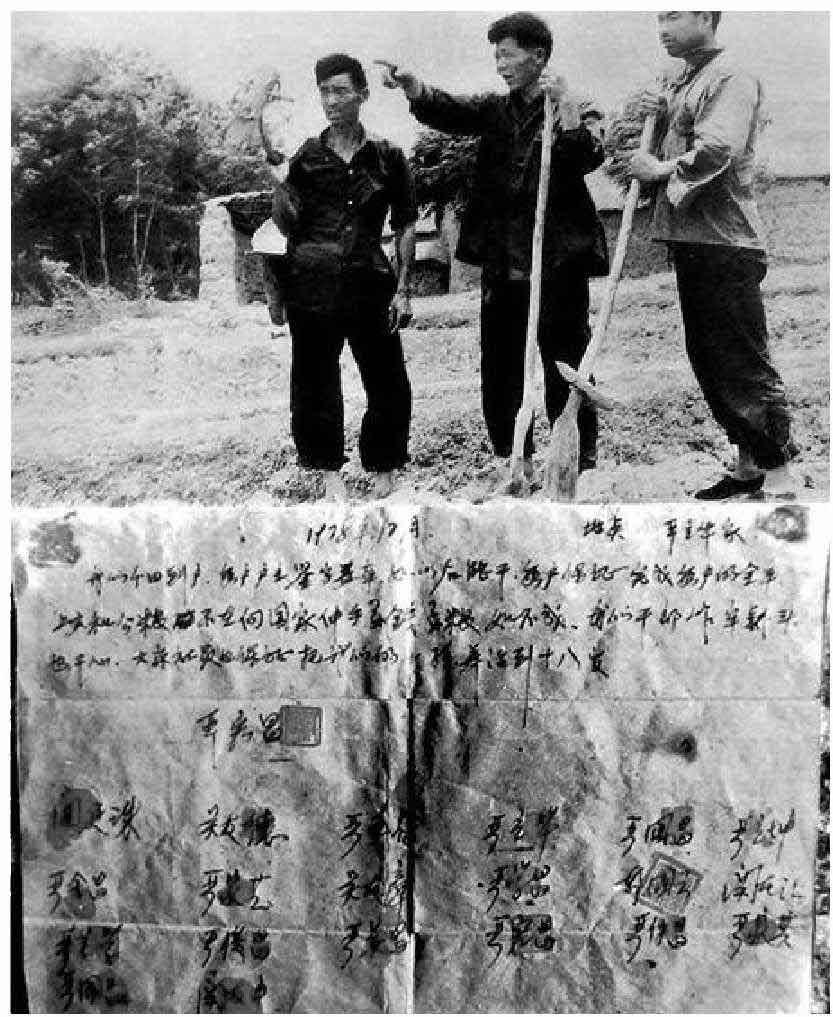 1978年12月 地点 严立华家
我们分田到户,每户户主签字盖章,如以后能干,每户保证完成每户的全年
上交和公粮 不在向国家伸手要钱要粮,如不成,我们干部作牢刹头
也干心,大家社员也保证把我们的小孩养活到十八岁
严宏昌
关廷珠 关友德 严立华 严国昌 严立坤
严金昌 严家芝 关友章 严学昌 韩国云 关友江
严立学 严俊昌 严美昌 严付昌 严家其
严国品 关友申